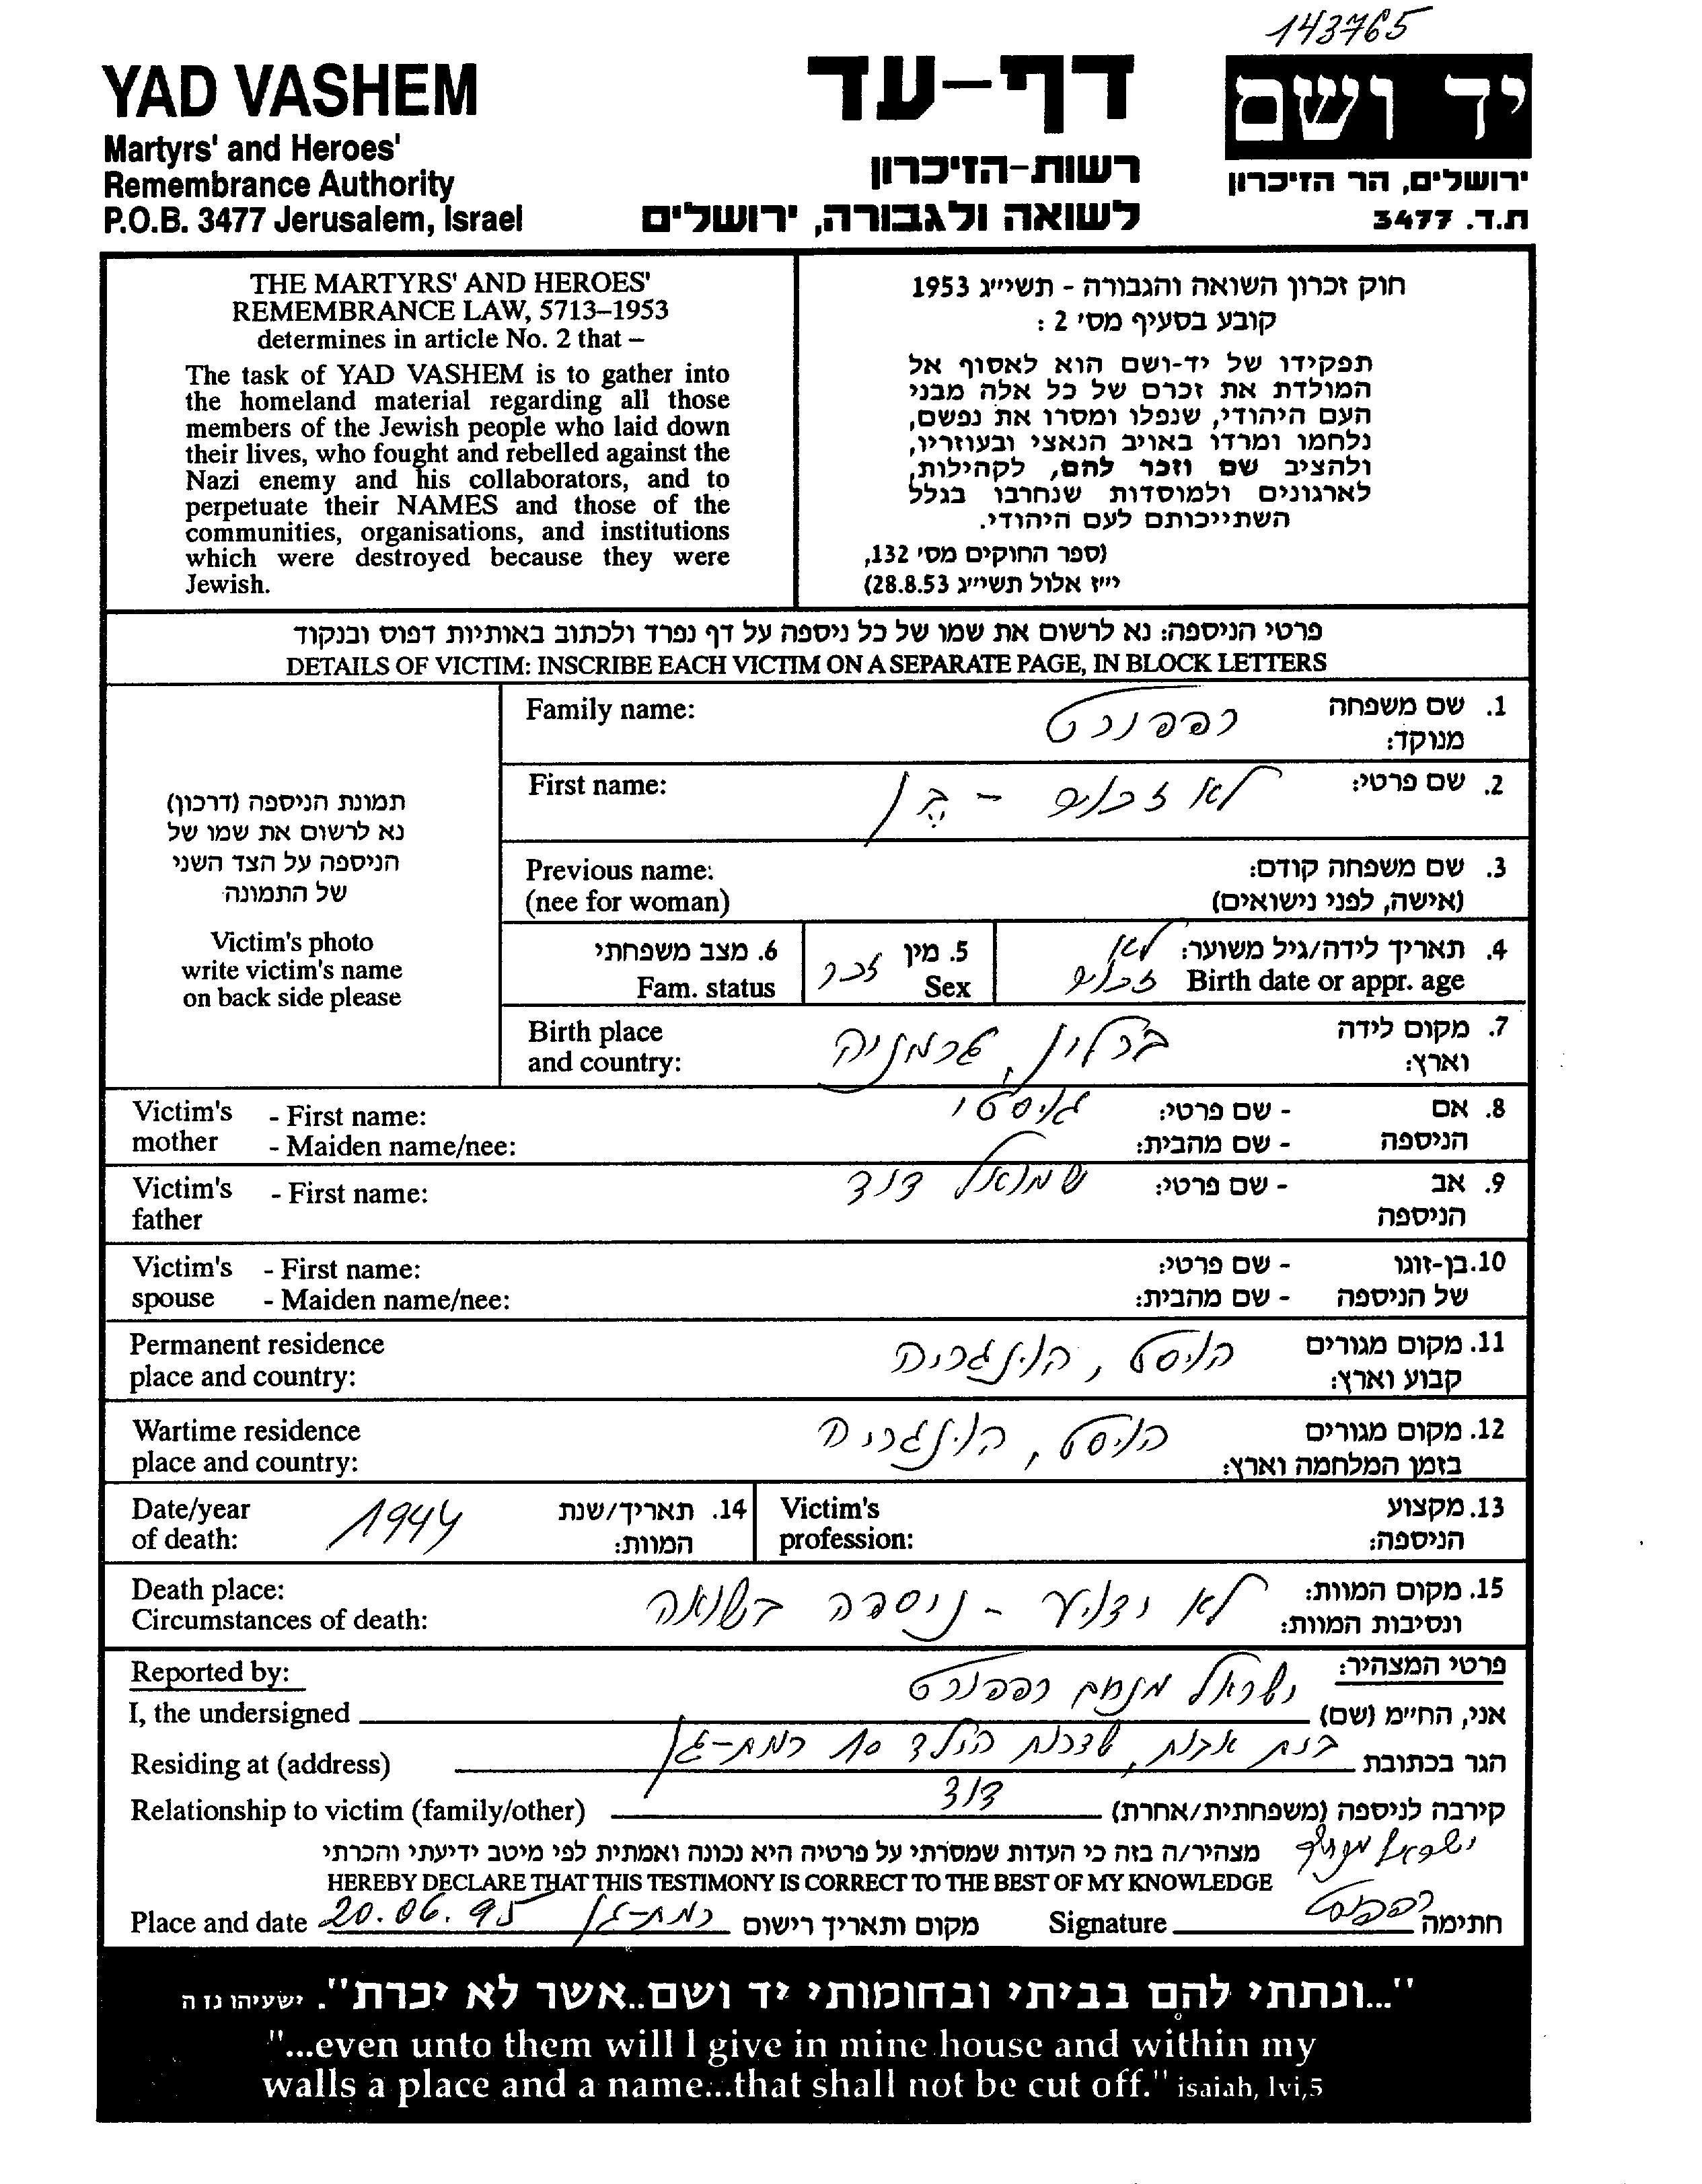 143765
YAD VASHEM
Martyrs' and Heroes'
Remembrance Authority
P.O.B. 3477 Jerusalem, Israel
דף-עד
רשות-הזיכרון
לשואה ולגבורה, ירושלים
יד ושם
ירושלים, הר הזיכרון
ת.ד. 3477
THE MARTYRS' AND HEROES'
REMEMBRANCE LAW, 5713–1953
determines in article No. 2 that –
The task of YAD VASHEM is to gather into
the homeland material regarding all those
members of the Jewish people who laid down
their lives, who fought and rebelled against the
Nazi enemy and his collaborators, and to
perpetuate their NAMES and those of the
communities, organisations, and institutions
which were destroyed because they were
Jewish.
חוק זכרון השואה והגבורה - תשי״ג 1953
קובע בסעיף מס׳ 2 :
תפקידו של יד-ושם הוא לאסוף אל
המולדת את זכרם של כל אלה מבני
העם היהודי, שנפלו ומסרו את נפשם,
נלחמו ומרדו באויב הנאצי ובעוזריו,
ולהציב שם וזכר להם, לקהילות,
לארגונים ולמוסדות שנחרבו בגלל
השתייכותם לעם היהודי.
(ספר החוקים מס׳ 132,
י״ז אלול תשי״ג 28.8.53)
פרטי הניספה: נא לרשום את שמו של כל ניספה על דף נפרד ולכתוב באותיות דפוס ובנקוד
DETAILS OF VICTIM: INSCRIBE EACH VICTIM ON A SEPARATE PAGE, IN BLOCK LETTERS
תמונת הניספה (דרכון)
נא לרשום את שמו של
הניספה על הצד השני
של התמונה
Victim's photo
write victim's name
on back side please
1. שם משפחה רפפורט Family name:
מנוקד:
2. שם פרטי: לא זכור - בן First name:
3. שם משפחה קודם: Previous name:
(אישה, לפני נישואים) (nee for woman)
4. תאריך לידה/גיל משוער: לא 5. מין זכר 6. מצב משפחתי
Birth date or appr. age Sex Fam. status
7. מקום לידה ברלין, גרמניה Birth place
וארץ: and country:
8. אם - שם פרטי: גוסטי Victim's - First name:
הניספה - שם מהבית: mother - Maiden name/nee:
9. אב - שם פרטי: שמואל דוד Victim's - First name:
הניספה father
10. בן-זוגו - שם פרטי: Victim's - First name:
של הניספה - שם מהבית: spouse - Maiden name/nee:
11. מקום מגורים הוסט, הונגריה Permanent residence
קבוע וארץ: place and country:
12. מקום מגורים הוסט, הונגריה Wartime residence
בזמן המלחמה וארץ: place and country:
13. מקצוע Victim's 14. תאריך/שנת 1944 Date/year
הניספה: profession: המוות: of death:
15. מקום המוות: לא ידוע - ניספה בשואה Death place:
ונסיבות המוות: Circumstances of death:
פרטי המצהיר: Reported by:
אני, החי״מ (שם) ישראל מנחם רפפורט I, the undersigned
הגר בכתובת בית אבות, שדרות הילד 10 רמת-גן Residing at (address)
קירבה לניספה (משפחתית/אחרת) דוד Relationship to victim (family/other)
מצהיר/ה בזה כי העדות שמסרתי על פרטיה היא נכונה ואמתית לפי מיטב ידיעתי והכרתי
HEREBY DECLARE THAT THIS TESTIMONY IS CORRECT TO THE BEST OF MY KNOWLEDGE
Place and date 20.06.95 רמת-גן מקום ותאריך רישום Signature ישראל מנחם רפפורט חתימה
"...ונתתי להם בביתי ובחומותי יד ושם..אשר לא יכרת". ישעיהו נז ה
"...even unto them will I give in mine house and within my
walls a place and a name...that shall not be cut off." isaiah, lvi,5